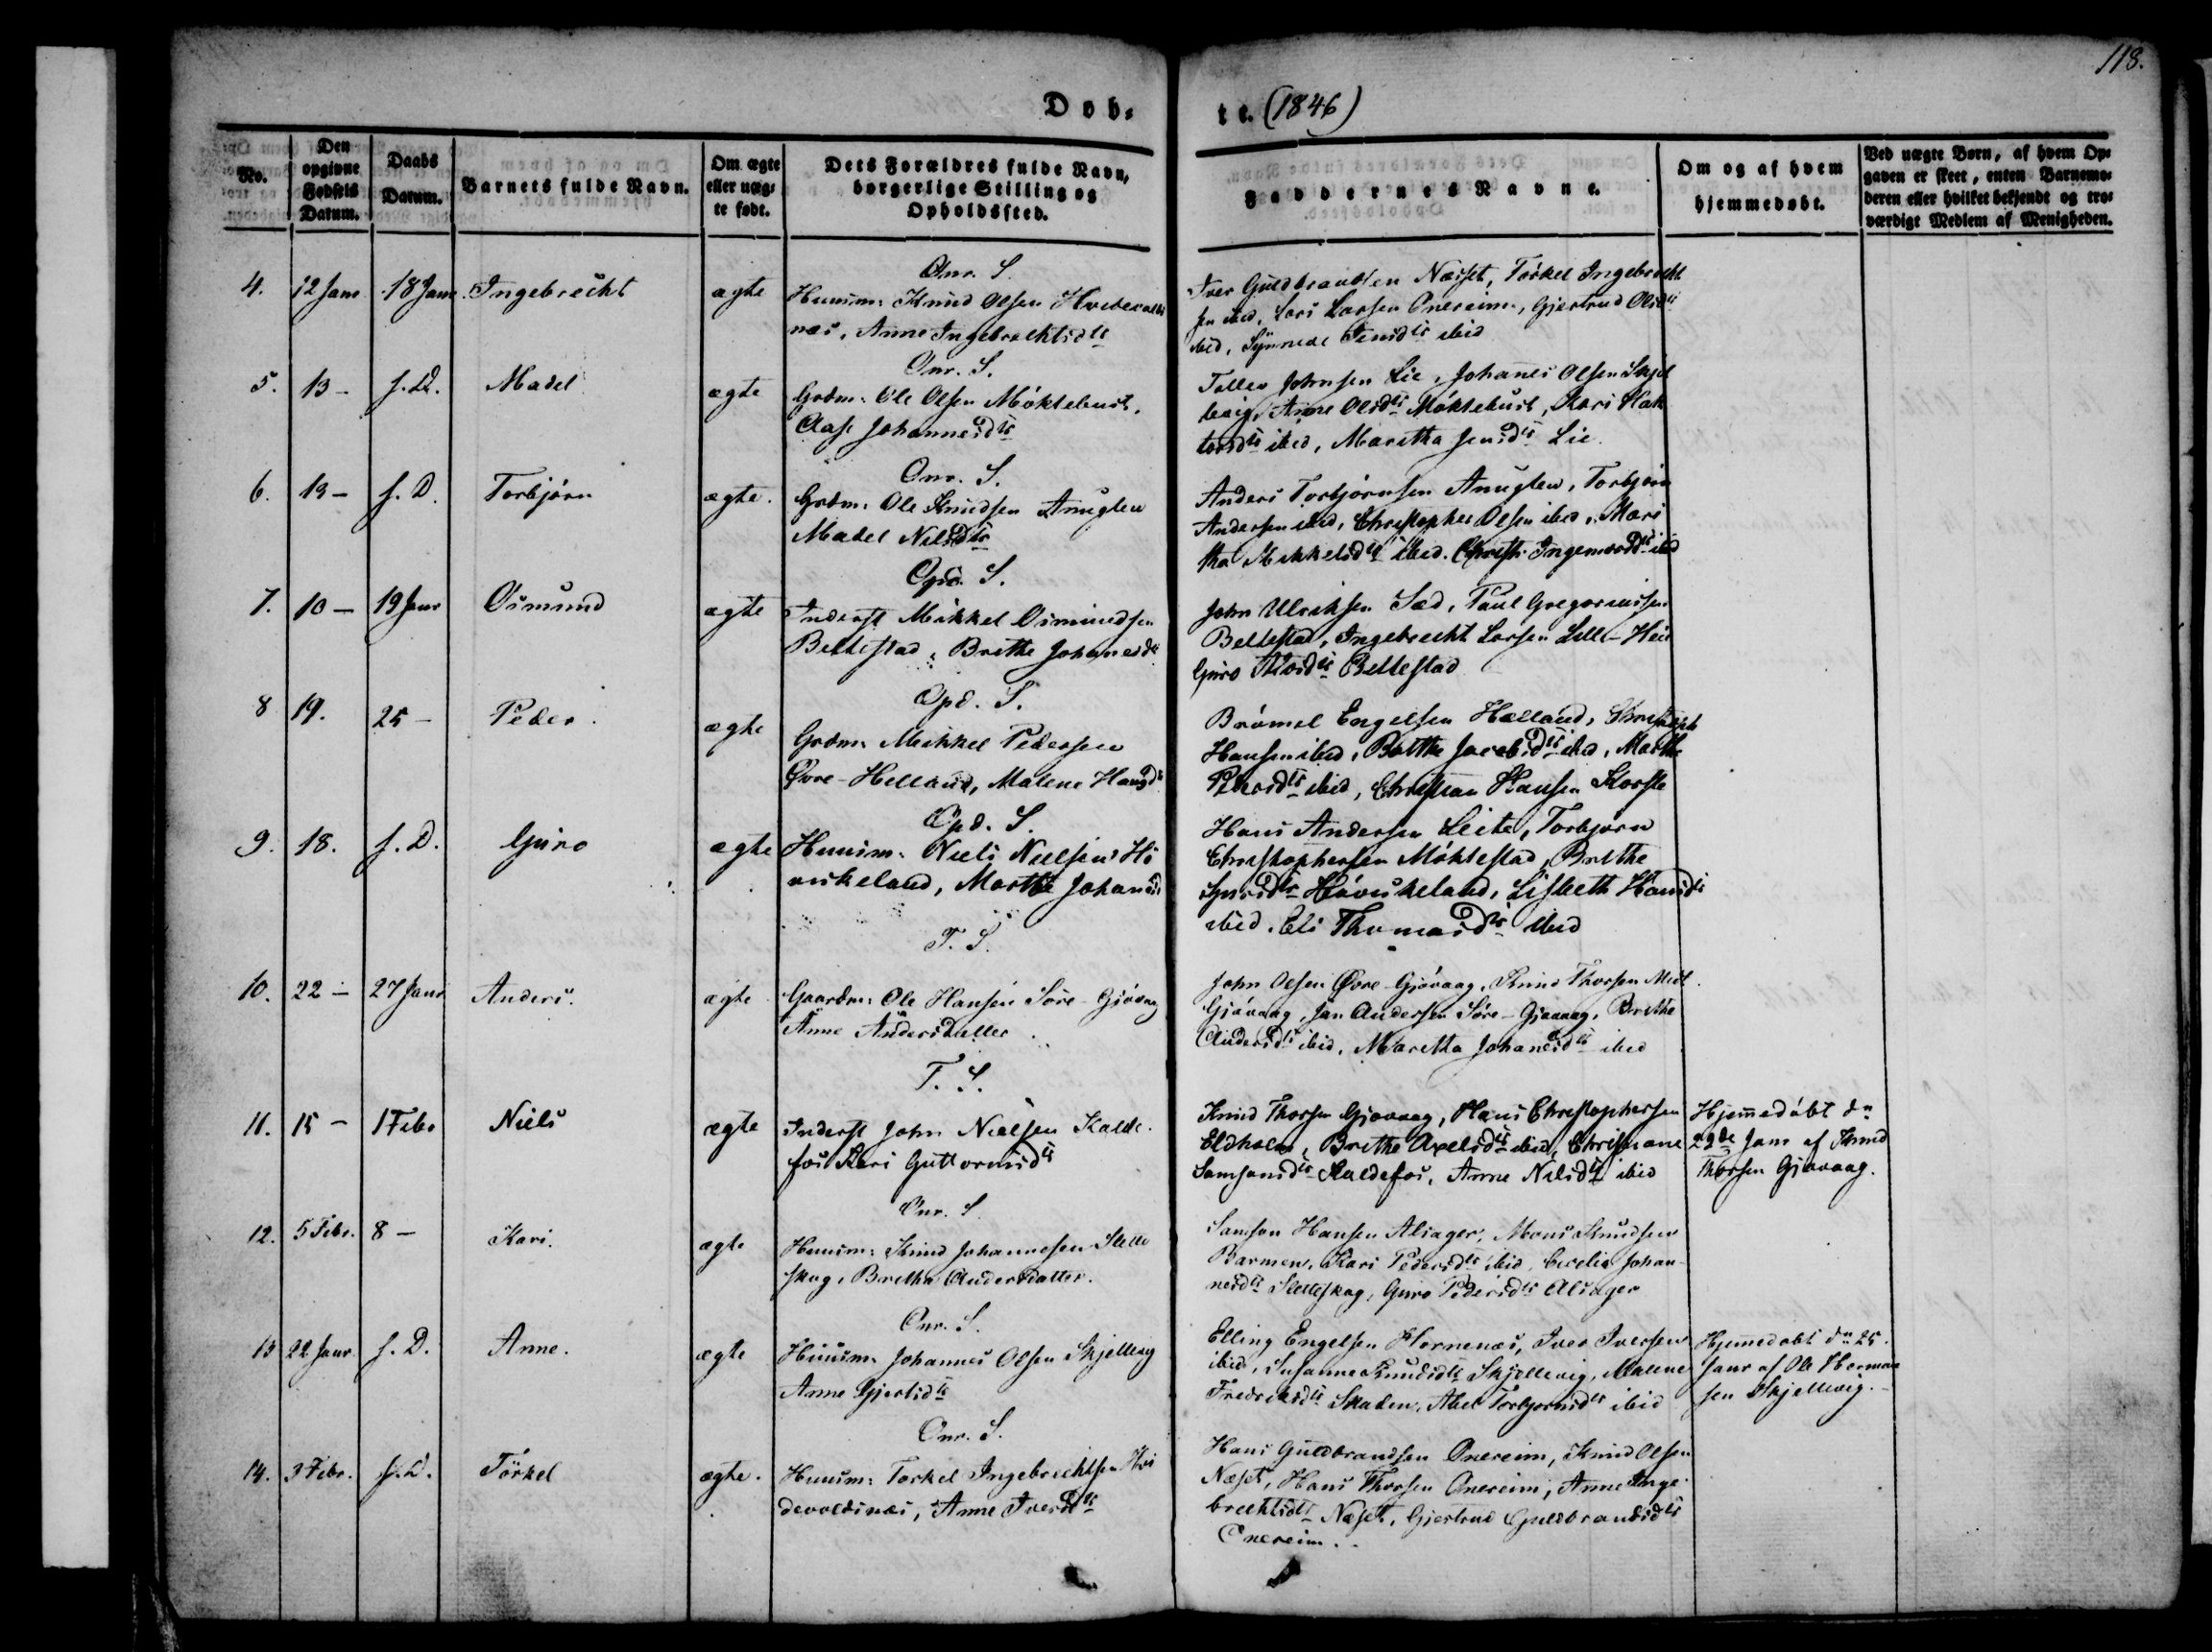 118.
Døb-
te. (1846)
No.
Den opgivne Fødsels Datum.
Daabs Datum.
Barnets fulde Navn.
Om ægte eller uæg- te født.
Dets Forældres fulde Navn, borgerlige Stilling og Opholdssted.
Faddernes Navne.
Om og af hvem hjemmedøbt.
Ved uægte Børn, af hvem Op- gaven er skeet, enten Barnemo- deren eller hvilket bekjendt og tro- værdigt Medlem af Menigheden.
Onr. S.
4. 12 Janr 18 Janr Ingebrecht ægte
Huusm: Knud Olsen
næs, Anne Ingebrechtsdtr
Iver Guldbrandsen Næsset, Törkel Ingebrecht
sen ibid, Lars Larsen Onereim, Gjertrud Olsdtr
ibid, Synneve ibid
Onr. S.
5. 13 - s. D. Madel ægte
Grdm: Ole Olsen Möktebust,
Aase Johannesdtr
Tollev Johnsen Lie, Johanes Olsen Skjel
levig, Anne Olsdtr Möktebust, Kari
ibid, Maritha Jensdtr Lie
Onr. S.
6. 13 - s. D. Torbjörn ægte.
Grdm: Ole Knudsen Anuglen
Madel Nilsdtr
Anders Torbjörnsen Anuglen, Torbjörn
Andersen ibid, Christopher Olsen ibid, Mari
tha Mikkelsdtr ibid. ibid
Opd. S.
7. 10 - 19 Janr Osmund ægte
Inderst Mikkel Osmundsen
Bellestad, Brithe Johanesdtr
John Ulriksen Sæd, Paul Gregoriussen
Bellestad, Ingebrecht Larsen
Guro Bellestad
Opd. S.
8 19. 25 - Peder. ægte
Grdm: Mikkel Pedersen
Øvre-Helland, Malene Hansdtr
Brömel Engelsen Hælland,
Hansen ibid, Brithe Jacobsdtr ibid, Marthe
ibid, Christian Hansen
Opd. S.
9. 18. s. D. Guro ægte
Huusm: Niels Nielsen Hö
viskeland, Marthe Johansdtr
Hans Andersen Leite, Torbjörn
Christophersen Möktestad, Brithe
Höviskeland, Lisbeth Hansdtr
ibid. Eli Thomasdtr ibid
T. S.
10. 22 - 27 Janr Anders. ægte
Gaardm: Ole Hansen Söre-Gjövaag
Anne Andersdatter
John Olsen Øvre-Gjövaag, Knud Thorsen Mel
Gjövaag, Jan Andersen Söre-Gjövaag, Brithe
Andersdtr ibid, Maritha Johanesdtr ibid
T. S.
11. 15 - 1 Febr Niels ægte
Inderst John Nielsen Kalde-
fos Kari Guttormsdtr
Knud Thorsen Gjövaag, Hans Christophersen
Eldholm, Brithe Axelsdtr ibid, Christiane
Samsonsdtr Kaldefos, Anne Nilsdtr ibid
Hjemmedöbt dn
22de Janr af Knud
Thorsen Gjövaag.
Onr. S.
12. 5 Febr. 8 - Kari. ægte
Huusm: Knud Johannesen Slette
skog, Britha Andersdatter.
Samson Hansen Alsager, Mons Knudsen
Barmen, Kari Pedersdtr ibid, Cecelia Johan-
nesdtr Sletteskog, Guro Pedersdtr Alsager
Onr. S.
13 22 Janr s. D. Anne. ægte
Huusm. Johannes Olsen Skjellevig
Anne Gjertsdtr
Elling Engelsen Hornenæs, Iver Iversen
ibid, Susanne Knudsdtr Skjellevig, Malene
Fredriksdtr Skaten, Abel Torbjörnsdtr ibid
Hjemmedöbt dn 25.
Janr af Ole Herman
sen Skjellevig.
Onr. S.
14. 3 Febr. s. D. Törkel ægte.
Huusm: Torkel Ingebrechtsen Hvi
devoldsnæs, Anne Iversdtr
Hans Guldbrandsen Onereim, Knud Olsen
Næset, Hans Thorsen Onereim, Anne Inge-
brechtsdtr Næset, Gjertrud Guldbrandsdtr
Onereim.